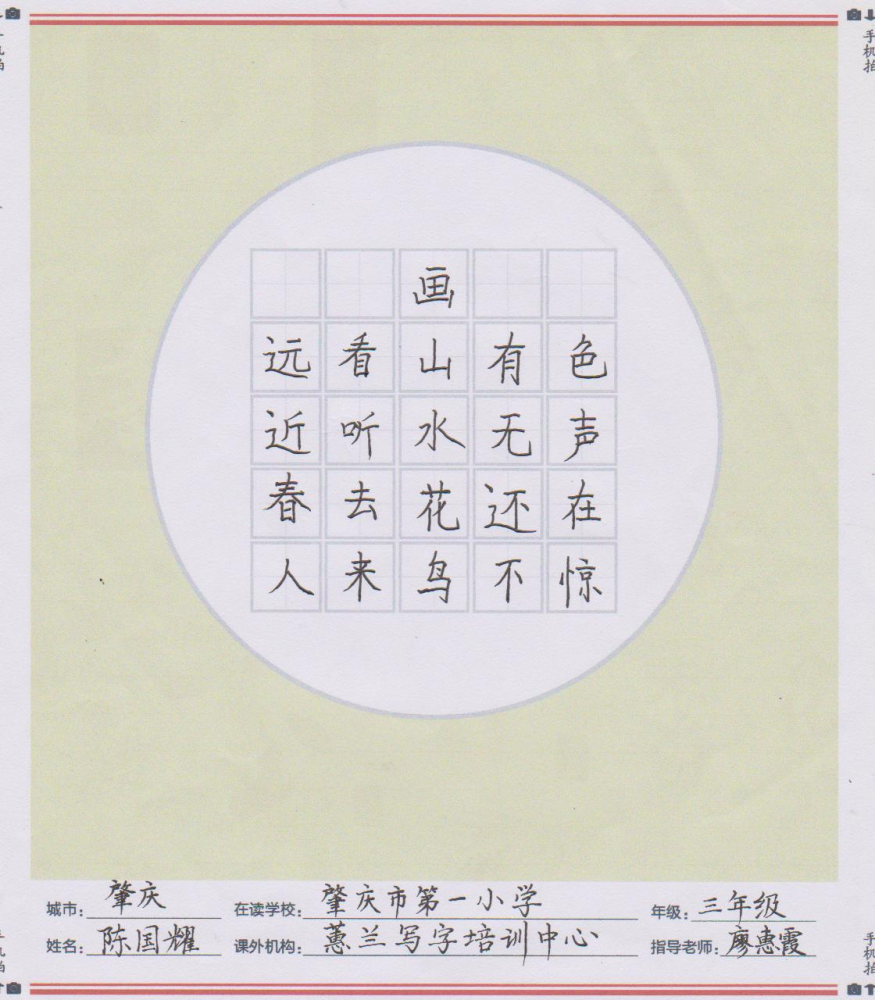 手机拍
画
远看山有色
近听水无声
春去花还在
人来鸟不惊
城市：肇庆 在读学校：肇庆市第一小学 年级：三年级
姓名：陈国耀 课外机构：蕙兰写字培训中心 指导老师：廖惠霞
手机拍